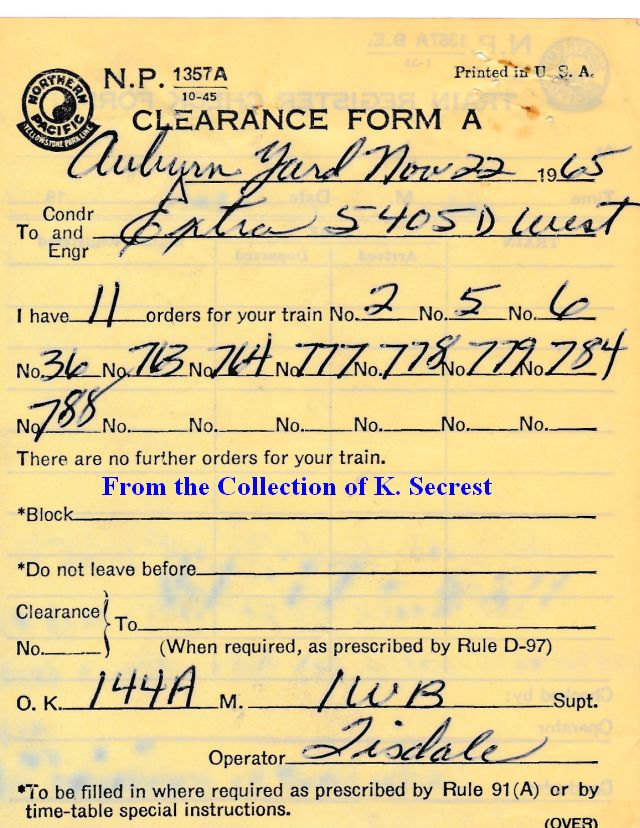 N.P. 1357A
10-45
Printed in U.S.A.
NORTHERN PACIFIC
YELLOWSTONE PARK LINE
CLEARANCE FORM A
Auburn Yard Nov 22 1965
To Condr and Engr Extra 5405D West
I have 11 orders for your train No. 2 No. 5 No. 6
No. 36 No. 763 No. 764 No. 777 No. 778 No. 779 No. 784
No. 788 No. No. No. No. No. No.
There are no further orders for your train.
From the Collection of K. Secrest
*Block
*Do not leave before
Clearance No. To
(When required, as prescribed by Rule D-97)
O. K. 144A M. IWB Supt.
Operator Tisdale
*To be filled in where required as prescribed by Rule 91(A) or by
time-table special instructions.
(OVER)